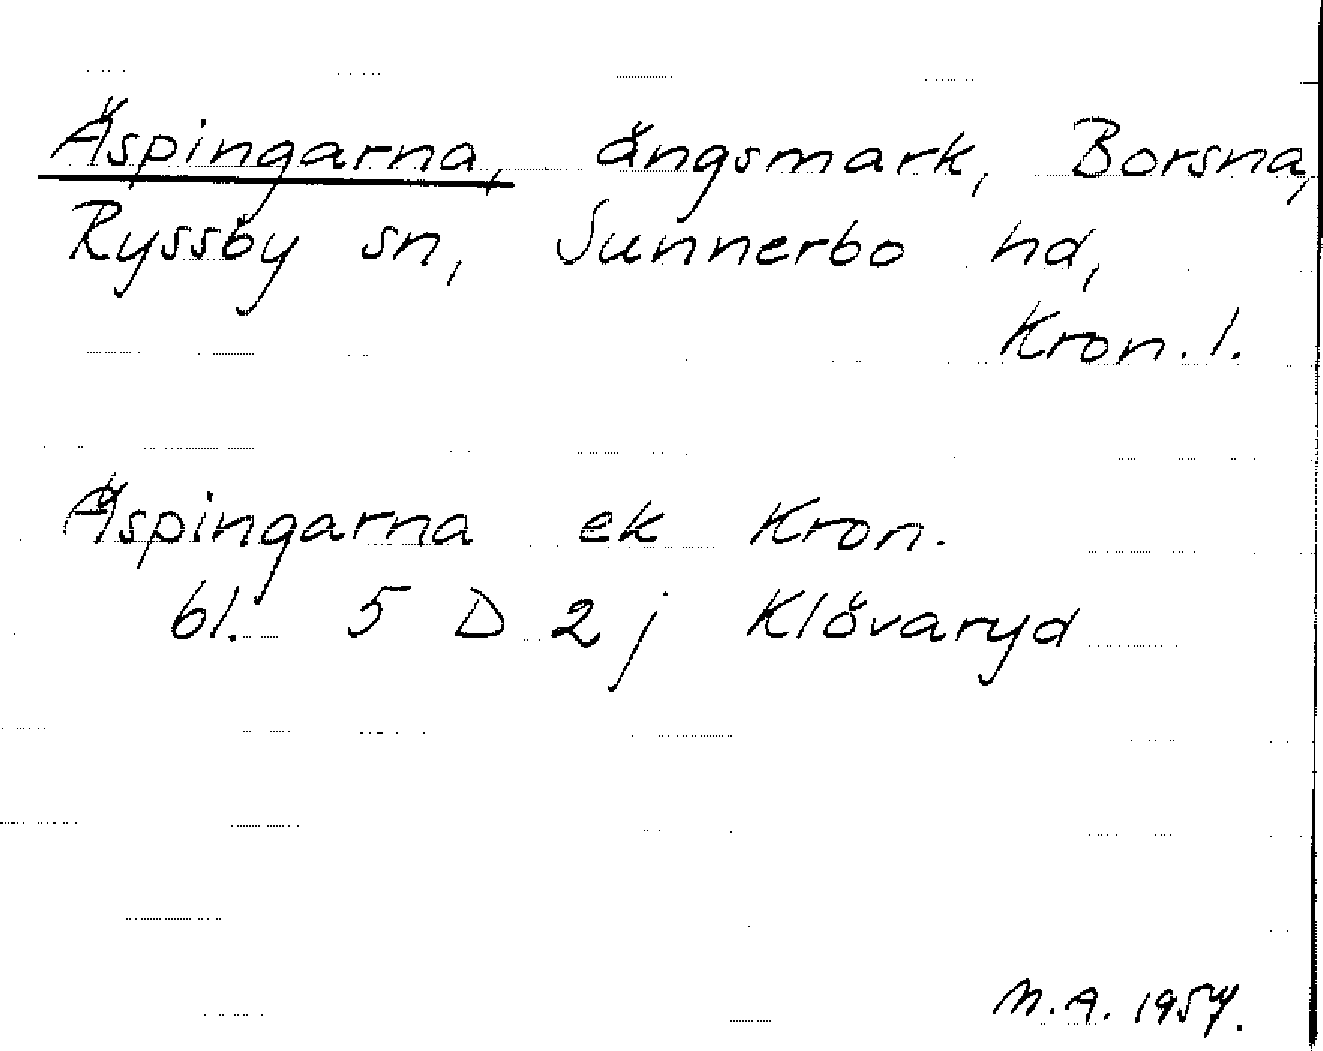 Äspingarna, ängsmark, Borsna,
Ryssby sn, Sunnerbo hd,
Kron. l.
Äspingarna ek Kron.
bl. 5 D 2 j Klövaryd
M.A. 1957.